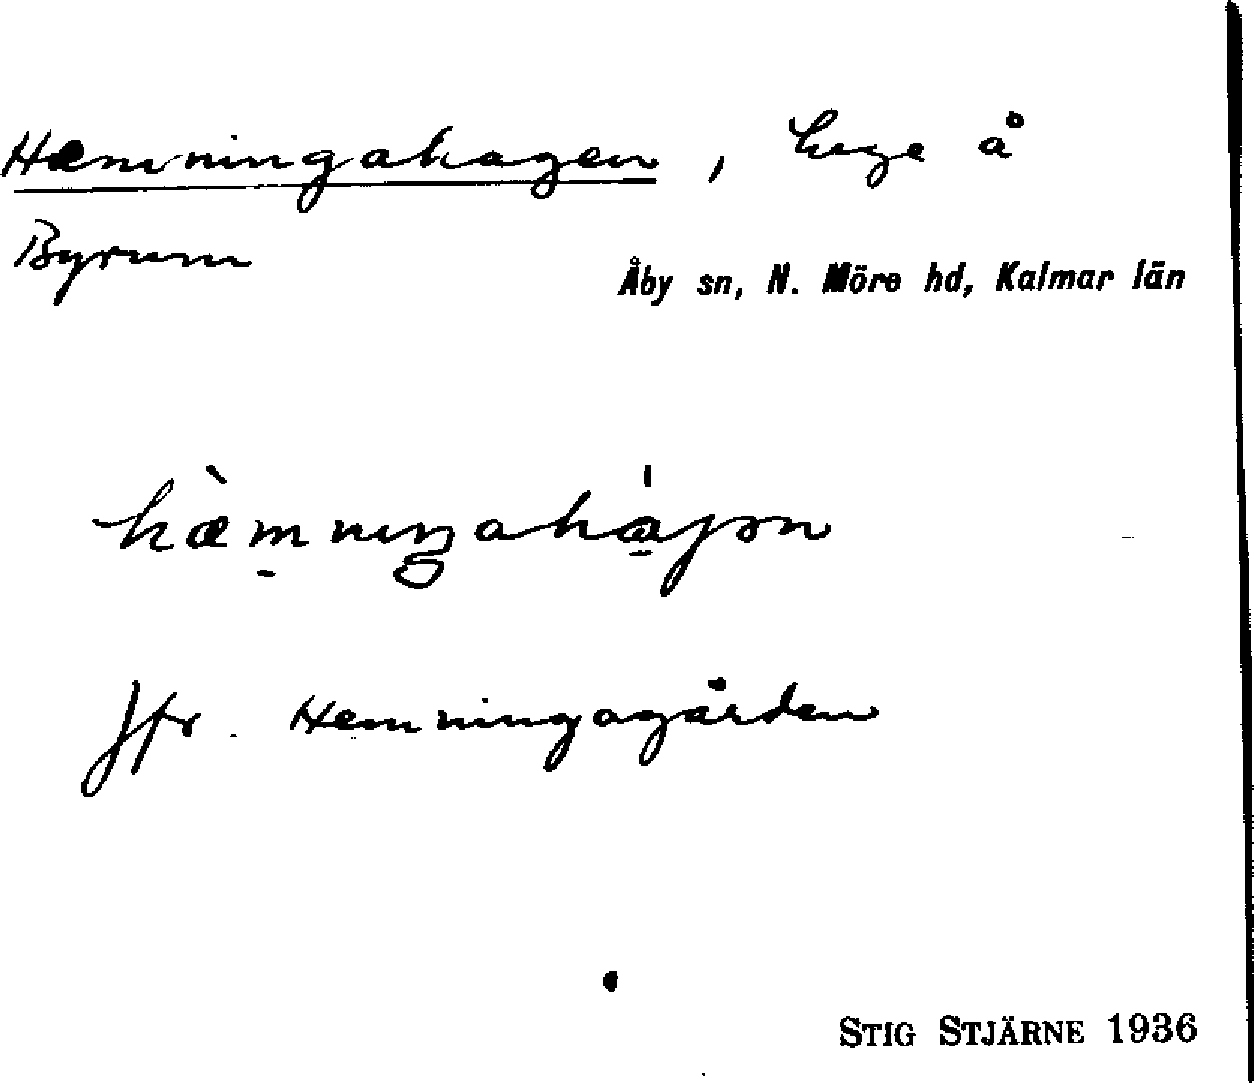 Hemningahagen, hage å
Byrum
Åby sn, N. Möre hd, Kalmar län
Jfr. Hemningagården
STIG STJÄRNE 1936